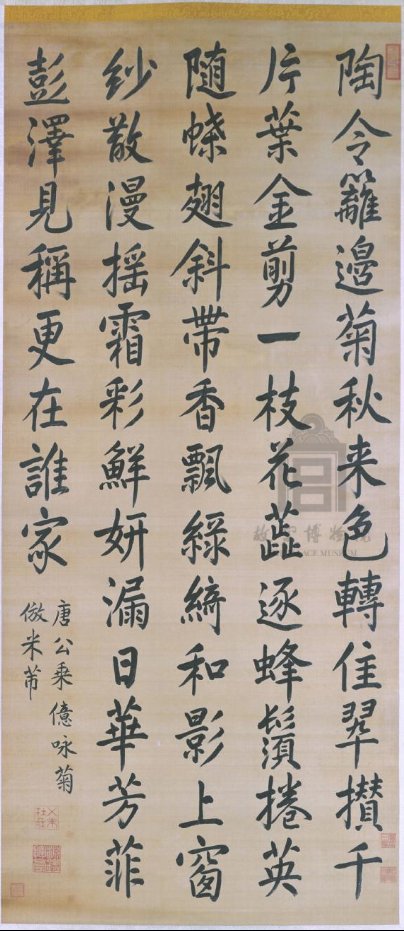 陶令籬邊菊秋来色轉佳翠攢千
片葉金剪一枝花蕋逐蜂鬚捲英
隨蝶翅斜帶香飄綠綺和影上窗
紗散漫摇霜彩鮮妍漏日華芳菲
彭澤見稱更在誰家
唐公乘億咏菊
倣米芾
故宫博物院
PALACE MUSEUM